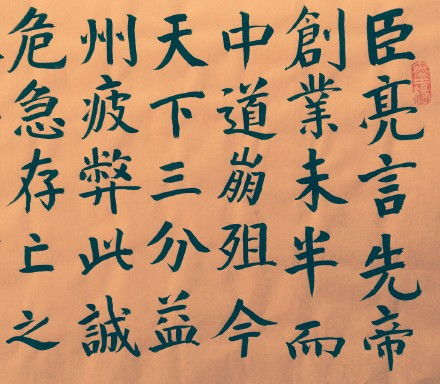 臣亮言先帝
創業未半而
中道崩殂今
天下三分益
州疲弊此誠
危急存亡之